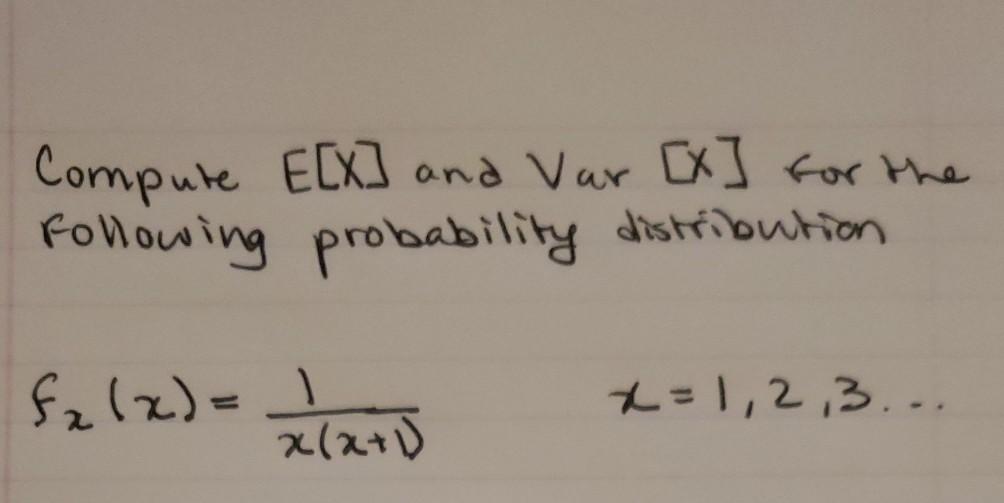 Compute E[X] and Var [X] for the
following probability distribution
fx(x) = 1/x(x+1) x = 1, 2, 3...